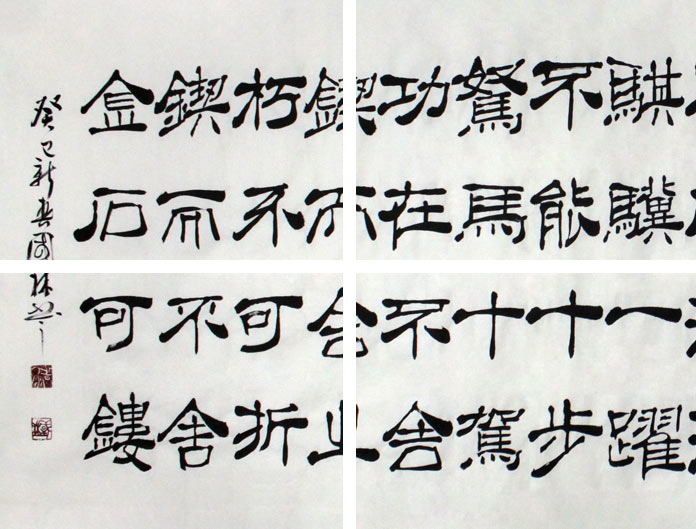 騏驥一躍
不能十步
駑馬十駕
功在不舍
鍥而舍之
朽不可折
鍥而不舍
金石可鏤
癸巳新春國林書